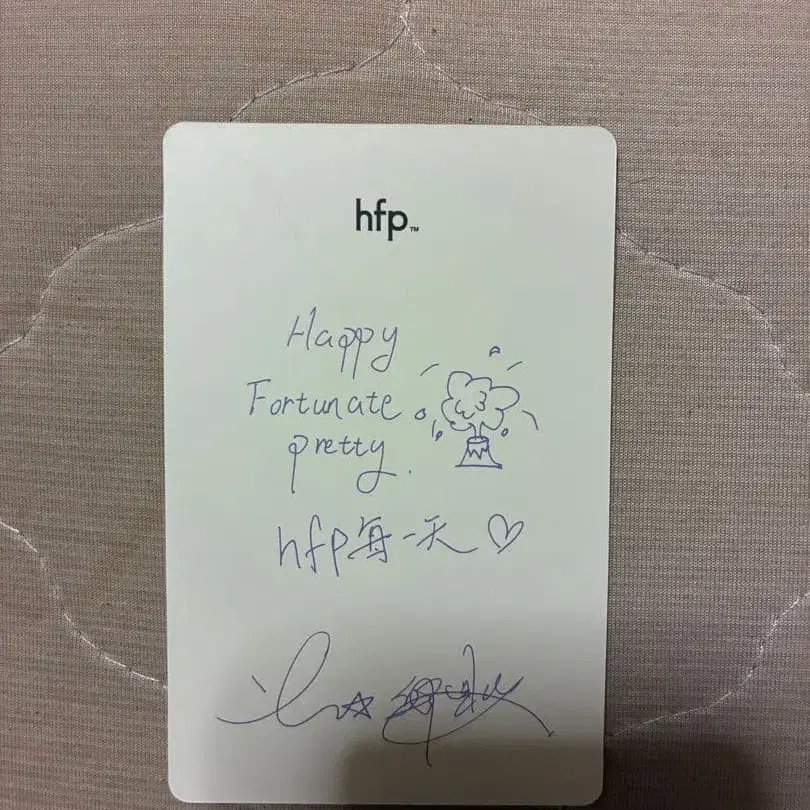 hfp™
Happy
Fortunate
pretty.
hfp每一天♡